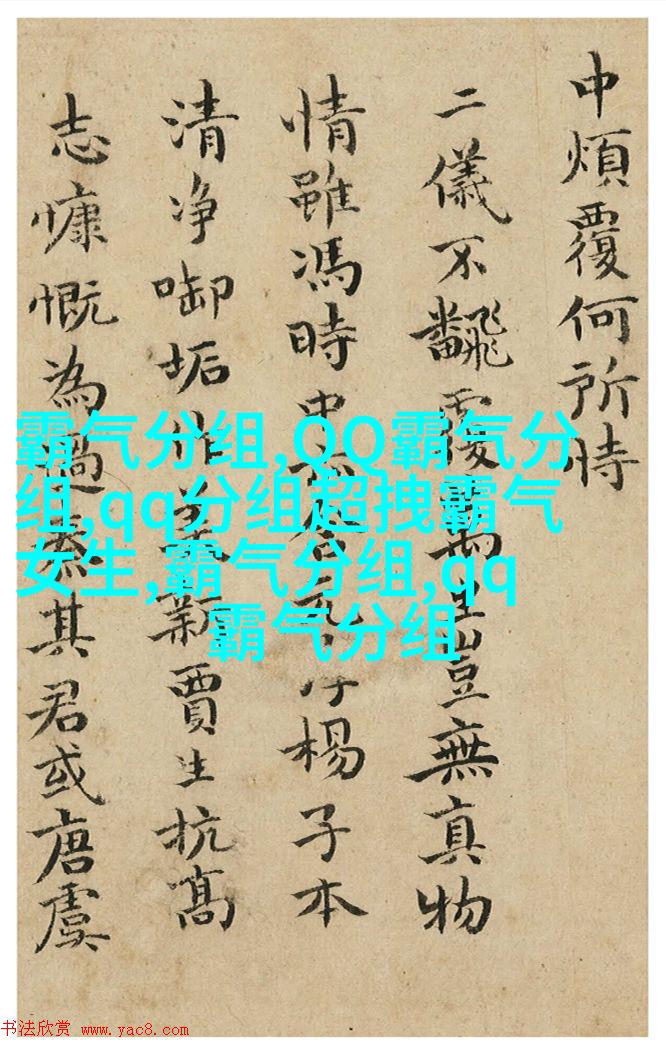 中煩覆何所恃
二儀不飜覆萬生豈無真物
情雖馮時中合楊子本
清净啣垢作新賈生抗高
志慷慨為過秦其君或唐虞
霸气分组,QQ霸气分
组,qq分组超拽霸气
女生,霸气分组,qq
霸气分组
书法欣赏 www.yac8.com